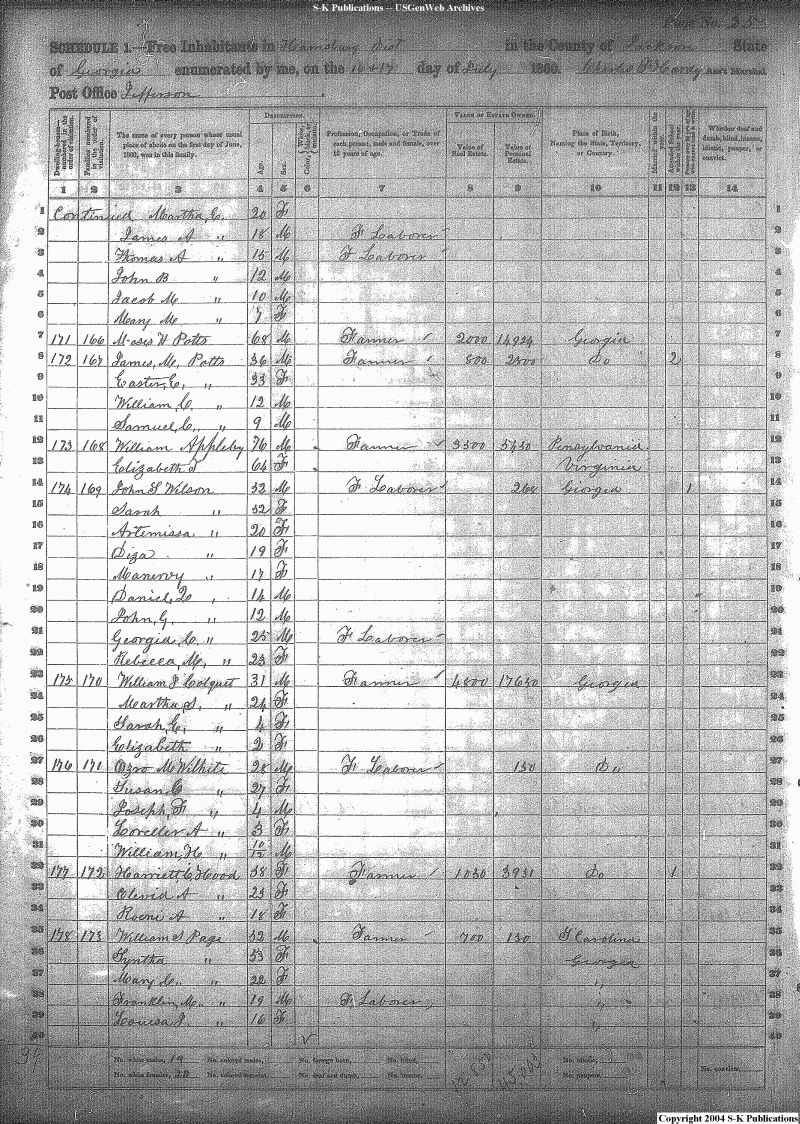 S-K Publications -- USGenWeb Archives
Page No. 35
SCHEDULE 1.—Free Inhabitants in Harrisburg Dist in the County of Jackson State
of Georgia enumerated by me, on the 16 & 17 day of July 1860. Charles Hardy Ass't Marshal
Post Office Jefferson
DESCRIPTION. VALUE OF ESTATE OWNED.
Dwelling-houses—numbered in the order of visitation.
Families numbered in the order of visitation.
The name of every person whose usual place of abode on the first day of June, 1860, was in this family.
Age. Sex. Color, White, black, or mulatto.
Profession, Occupation, or Trade of each person, male and female, over 15 years of age.
Value of Real Estate. Value of Personal Estate.
Place of Birth, Naming the State, Territory, or Country.
Married within the year. Attended School within the year.
Whether deaf and dumb, blind, insane, idiotic, pauper, or convict.
1 2 3 4 5 6 7 8 9 10 11 12 13 14
1 Continued Martha, C. 20 F 1
2 James A " 18 M F Laborer 2
3 Thomas A " 15 M F Laborer 3
4 John B " 12 M 4
5 Jacob M " 10 M 5
6 Mary M " 7 F 6
7 171 166 Moses W Potts 68 M Farmer 2000 14924 Georgia 7
8 172 167 James, M, Potts 36 M Farmer 800 2500 Do 2 8
9 Easter, C, " 33 F 9
10 William, C, " 12 M 10
11 Samuel, C, " 9 M 11
12 173 168 William Appleby 76 M Farmer 3500 5450 Pensylvania 12
13 Elizabeth T 64 F Virginia 13
14 174 169 John S Wilson 52 M F Laborer 268 Georgia 1 14
15 Sarah " 52 F 15
16 Artemissa " 20 F 16
17 Diza " 19 F 17
18 Manervy " 17 F 18
19 Daniel, D " 14 M 19
20 John, G, " 12 M 20
21 Georgia, C " 25 M F Laborer 21
22 Rebecca, M, " 23 F 22
23 175 170 William J Colquet 31 M Farmer 4800 17650 Georgia 23
24 Martha, S, " 24 F 24
25 Sarah, C, " 4 F 25
26 Elizabeth " 2 F 26
27 176 171 Ozro McWilhite 28 M F Laborer 150 Do " 27
28 Susan, C " 27 F 28
29 Joseph, F " 4 M 29
30 Loveller A " 3 F 30
31 William, H " 10/12 M 31
32 177 172 Harriett, C, Hood 38 F Farmer 1050 3931 Do 1 32
33 Clevid A " 23 F 33
34 Roene A " 18 F 34
35 178 173 William S Page 52 M Farmer 700 150 S Carolina 35
36 Syntha " 53 F Georgia 36
37 Mary C, " 22 F " 37
38 Franklin, M, " 19 M F Laborer " 38
39 Louisa J, " 16 F " 39
40 40
No. white males, 19 No. colored males, No. foreign born, No. blind, No. idiotic,
No. white females, 20 No. colored females, No. deaf and dumb, No. insane, 12,850 45,003 No. paupers, No. convicts,
39
Copyright 2004 S-K Publications